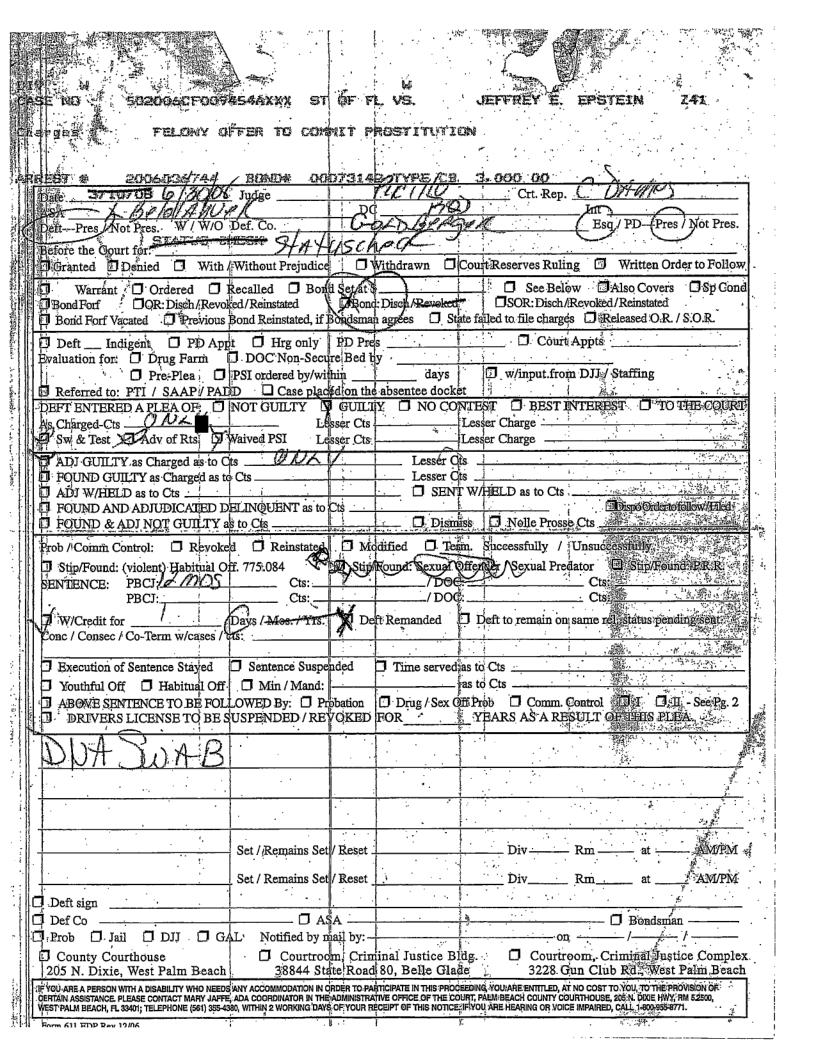 DIV W W
CASE NO 502006CF009454AXXX ST OF FL VS. JEFFREY E. EPSTEIN 241
Charges FELONY OFFER TO COMMIT PROSTITUTION
ARREST # 2006036744 BOND# TYPE/CB. 3,000.00
Date 6/30/08 Judge Crt. Rep.
ASA DC Int
Deft Pres / Not Pres. W / W/O Def. Co. GOLDBERGER Esq / PD Pres / Not Pres.
Before the Court for: STATUS CHECK Status check
Granted Denied With / Without Prejudice Withdrawn Court Reserves Ruling Written Order to Follow
Warrant Ordered Recalled Bond Set at $ See Below Also Covers Sp Cond
Bond Forf OR: Disch / Revoked / Reinstated Bond: Disch / Revoked SOR: Disch / Revoked / Reinstated
Bond Forf Vacated Previous Bond Reinstated, if Bondsman agrees State failed to file charges Released O.R. / S.O.R.
Deft Indigent PD Appt Hrg only PD Pres Court Appts
Evaluation for: Drug Farm DOC Non-Secure Bed by
Pre-Plea PSI ordered by/within days w/input from DJJ / Staffing
Referred to: PTI / SAAP / PADD Case placed on the absentee docket
DEFT ENTERED A PLEA OF: NOT GUILTY GUILTY NO CONTEST BEST INTEREST TO THE COURT
As Charged-Cts Lesser Cts Lesser Charge
Sw & Test Adv of Rts Waived PSI Lesser Cts Lesser Charge
ADJ GUILTY as Charged as to Cts Lesser Cts
FOUND GUILTY as Charged as to Cts Lesser Cts
ADJ W/HELD as to Cts SENT W/HELD as to Cts
FOUND AND ADJUDICATED DELINQUENT as to Cts Dispo Order to follow / Filed
FOUND & ADJ NOT GUILTY as to Cts Dismiss Nolle Prosse Cts
Prob / Comm Control: Revoked Reinstated Modified Term. Successfully / Unsuccessfully
Stip/Found: (violent) Habitual Off. 775.084 Stip/Found: Sexual Offender / Sexual Predator Stip/Found P.R.R.
SENTENCE: PBCJ: 12 MOS Cts: / DOC: Cts:
PBCJ: Cts: / DOC: Cts:
W/Credit for 1 Days / Mos. / Yrs. Deft Remanded Deft to remain on same rel. status pending sent
Conc / Consec / Co-Term w/cases / cts:
Execution of Sentence Stayed Sentence Suspended Time served as to Cts
Youthful Off Habitual Off Min / Mand: as to Cts
ABOVE SENTENCE TO BE FOLLOWED By: Probation Drug / Sex Off Prob Comm. Control I II - See Pg. 2
DRIVERS LICENSE TO BE SUSPENDED / REVOKED FOR YEARS AS A RESULT OF THIS PLEA.
DNA SWAB
Set / Remains Set / Reset Div Rm at AM/PM
Set / Remains Set / Reset Div Rm at AM/PM
Deft sign
Def Co ASA Bondsman
Prob Jail DJJ GAL Notified by mail by: on / /
County Courthouse Courtroom, Criminal Justice Bldg. Courtroom, Criminal Justice Complex
205 N. Dixie, West Palm Beach 38844 State Road 80, Belle Glade 3228 Gun Club Rd., West Palm Beach
IF YOU ARE A PERSON WITH A DISABILITY WHO NEEDS ANY ACCOMMODATION IN ORDER TO PARTICIPATE IN THIS PROCEEDING, YOU ARE ENTITLED, AT NO COST TO YOU, TO THE PROVISION OF
CERTAIN ASSISTANCE. PLEASE CONTACT MARY JAFFE, ADA COORDINATOR IN THE ADMINISTRATIVE OFFICE OF THE COURT, PALM BEACH COUNTY COURTHOUSE, 205 N. DIXIE HWY, RM 5.2500,
WEST PALM BEACH, FL 33401; TELEPHONE (561) 355-4380, WITHIN 2 WORKING DAYS OF YOUR RECEIPT OF THIS NOTICE: IF YOU ARE HEARING OR VOICE IMPAIRED, CALL 1-800-955-8771.
Form 611 HDP Rev 12/06